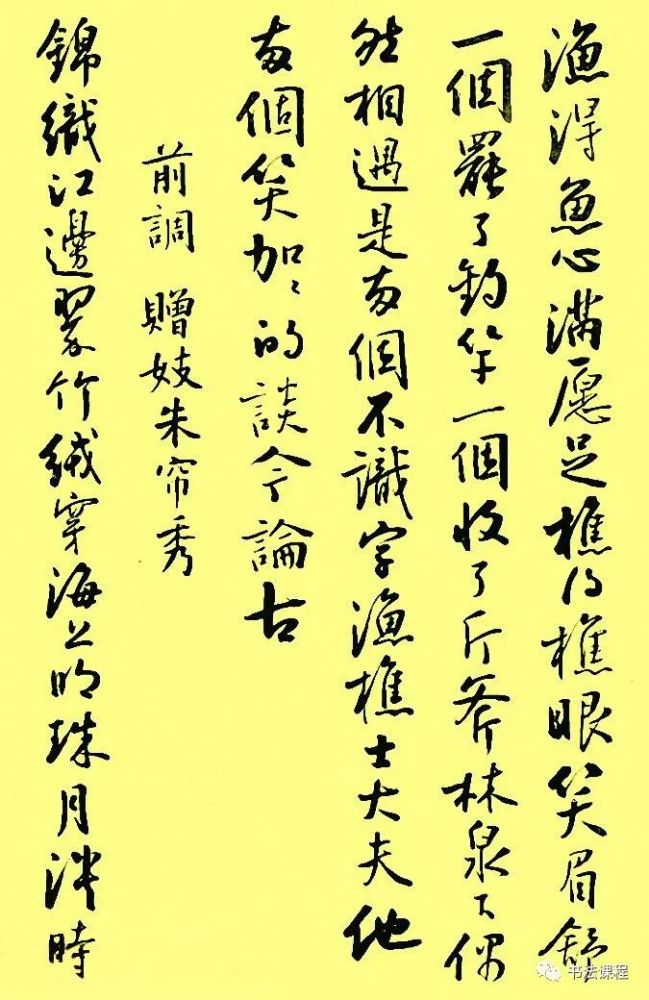 漁得魚心滿愿足樵得樵眼笑眉舒
一個罷了釣竿一個收了斤斧林泉下偶
然相遇是兩個不識字漁樵士大夫他
兩個笑加〻的談今論古
前調 贈妓朱帘秀
錦織江邊翠竹絨穿海上明珠月淡時
书法课程